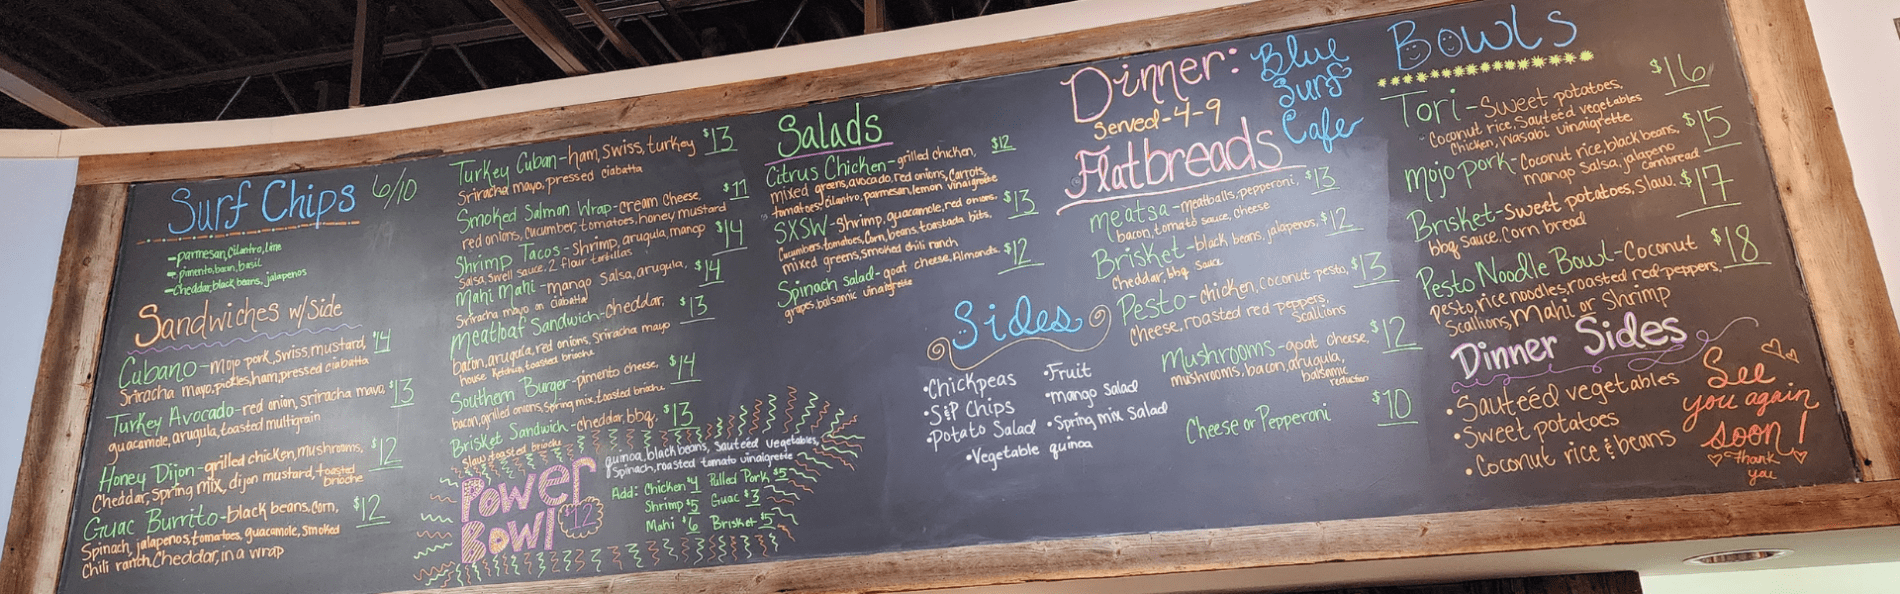 Surf Chips 6/10
-parmesan, cilantro, lime
-pimento, bacon, basil
-cheddar, black beans, jalapenos
Sandwiches w/Side
Cubano-mojo pork, swiss, mustard, $14
Sriracha mayo, pickles, ham, pressed ciabatta
Turkey Avocado-red onion, sriracha mayo, $13
guacamole, arugula, toasted multigrain
Honey Dijon-grilled chicken, mushrooms, $12
Cheddar, Spring mix, dijon mustard, toasted
brioche
Guac Burrito-black beans, corn, $12
Spinach, jalapenos, tomatoes, guacamole, smoked
chili ranch, Cheddar, in a wrap
Turkey Cuban-ham, swiss, turkey $13
Sriracha mayo, pressed ciabatta
Smoked Salmon Wrap-cream cheese, $11
red onions, cucumber, tomatoes, honey mustard
Shrimp Tacos-shrimp, arugula, mango $14
Salsa, swell sauce, 2 flour tortillas
Mahi Mahi-mango salsa, arugula, $14
Sriracha mayo on ciabatta
Meatloaf Sandwich-cheddar, $13
bacon, arugula, red onions, sriracha mayo
house ketchup, toasted brioche
Southern Burger-pimento cheese, $14
bacon, grilled onions, spring mix, toasted brioche
Brisket Sandwich-cheddar, bbq, $13
slaw, toasted brioche
Power
Bowl $12
quinoa, black beans, Sautéed vegetables,
Spinach, roasted tomato vinaigrette
Add: Chicken $4 Pulled Pork $5
Shrimp $5 Guac $3
Mahi $6 Brisket $5
Salads
Citrus Chicken-grilled chicken, $12
mixed greens, avocado, red onions, carrots,
tomatoes, cilantro, parmesan, lemon vinaigrette
SXSW-Shrimp, guacamole, red onions, $13
Cucumbers, tomatoes, corn, beans, tostada bits,
mixed greens, smoked chili ranch
Spinach Salad-goat cheese, Almonds, $12
grapes, balsamic vinaigrette
Sides
•Chickpeas
•S&P Chips
•Potato Salad
•Fruit
•mango Salad
•Spring mix Salad
•Vegetable quinoa
Dinner:
Served-4-9
Blue
Surf
Cafe
Flatbreads
Meatsa-meatballs, pepperoni, $13
bacon, tomato sauce, cheese
Brisket-black beans, jalapenos, $12
Cheddar, bbq sauce
Pesto-chicken, coconut pesto, $13
Cheese, roasted red peppers,
scallions
Mushrooms-goat cheese, $12
mushrooms, bacon, arugula,
balsamic
reduction
Cheese or Pepperoni $10
Bowls
Tori-Sweet potatoes, $16
Coconut rice, Sautéed vegetables
Chicken, Wasabi Vinaigrette
Mojo pork-Coconut rice, black beans, $15
mango Salsa, jalapeno
Cornbread
Brisket-Sweet potatoes, slaw, $17
bbq sauce, Corn bread
Pesto Noodle Bowl-Coconut $18
Pesto, rice noodles, roasted red peppers,
Scallions, Mahi or Shrimp
Dinner Sides
•Sautéed vegetables
•Sweet potatoes
•Coconut rice & beans
See
you again
soon!
Thank
you